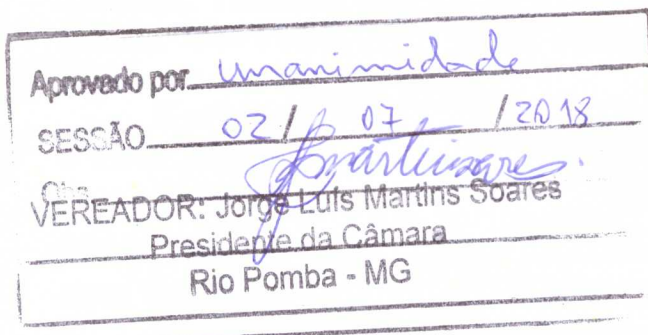 Aprovado por unanimidade
SESSÃO 02 / 07 / 2018
Obs
VEREADOR: Jorge Luís Martins Soares
Presidente da Câmara
Rio Pomba - MG